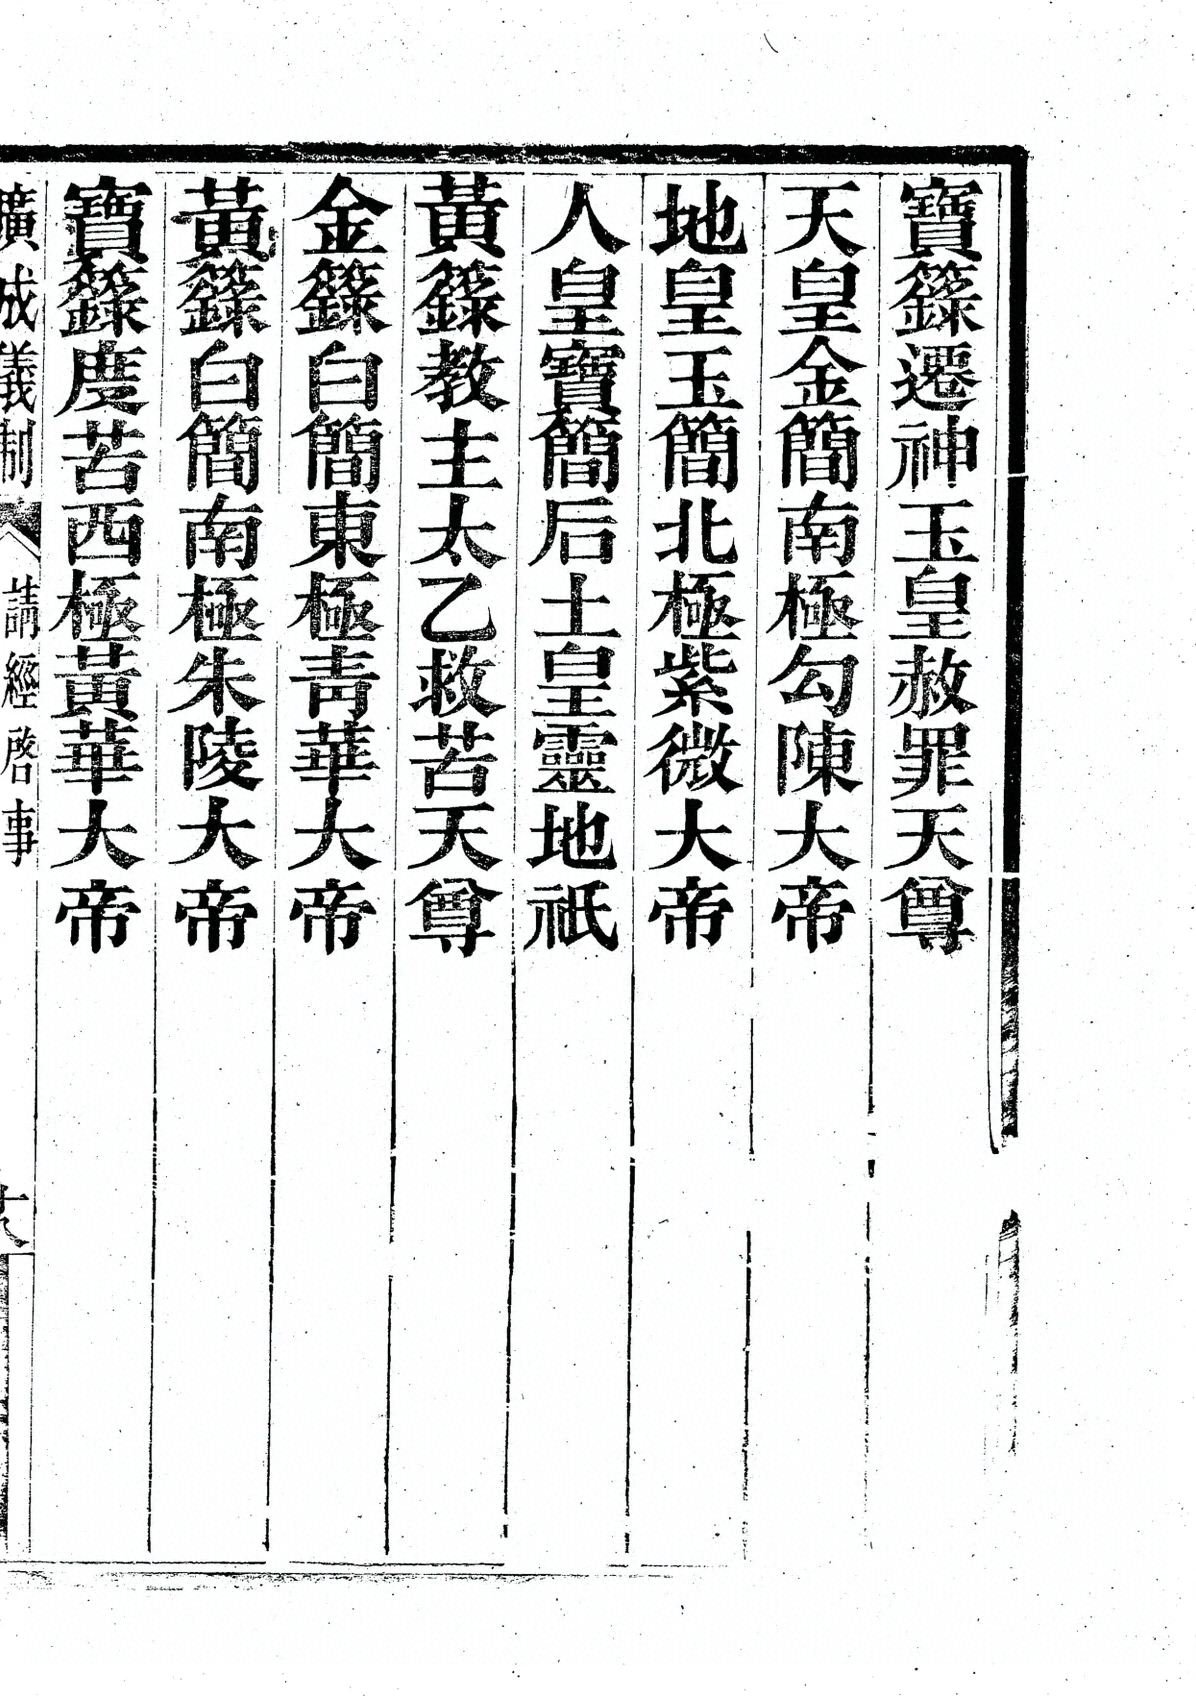 寶籙遷神玉皇赦罪天尊
天皇金簡南極勾陳大帝
地皇玉簡北極紫微大帝
人皇寶簡后土皇靈地祇
黃籙教主太乙救苦天尊
金籙白簡東極青華大帝
黃籙白簡南極朱陵大帝
寶籙度苦西極黃華大帝
廣成儀制
請經啓事